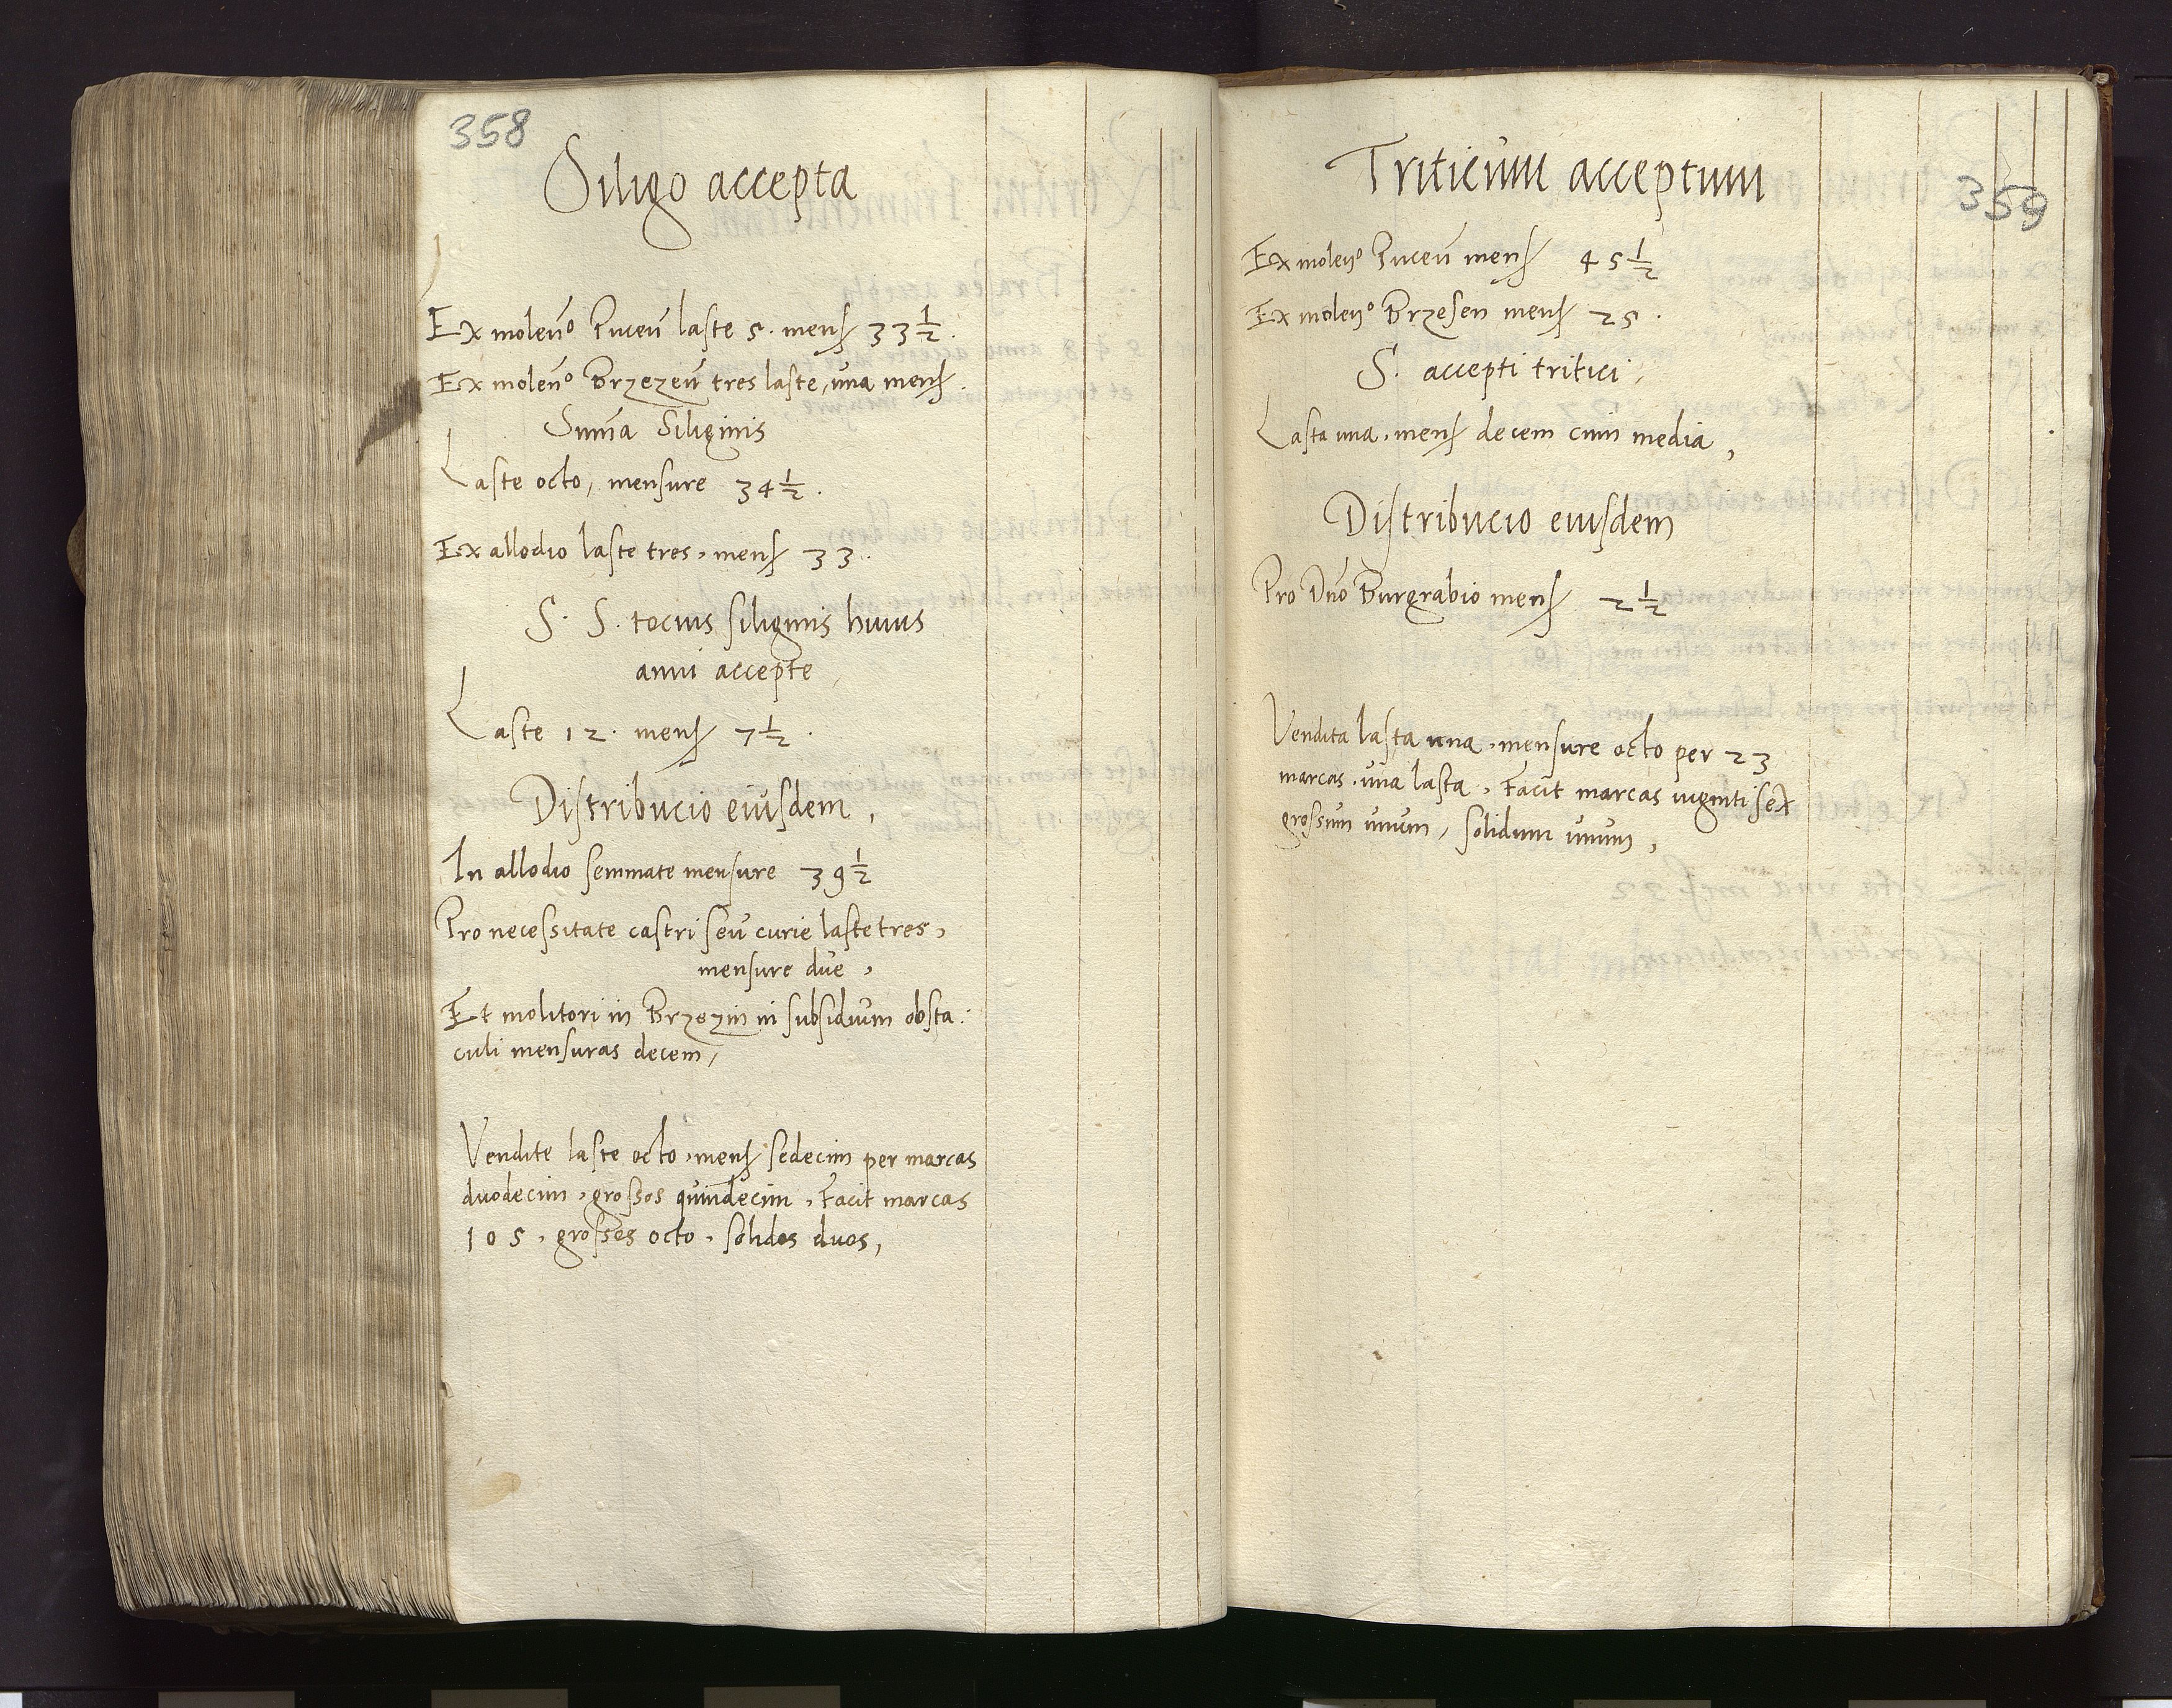 358
Siligo accepta
Ex molen̄o Puceū laste 5. mens 33 1/2.
Ex molen̄o Brzezeū tres laste, una mens.
Sum̄a Siliginis
Laste octo, mensure 34 1/2.
Ex allodio laste tres, mens 33.
S. S. tocius siliginis huius
anni accepte
Laste 12. mens 7 1/2.
Distribucio eiusdem,
In allodio seminate mensure 39 1/2
Pro necessitate castri seu curie laste tres,
mensure due,
Et molitori in Brzezin in subsidium obsta:
culi mensuras decem,
Vendite laste octo, mens sedecim per marcas
duodecim, grossos quindecim, Facit marcas
105, grosses octo, solidos duos,
Triticum acceptum
359
Ex molen̄o Puceū mens 45 1/2
Ex molen̄o Brzesen mens 25.
S. accepti tritici,
Lasta una, mens decem cum media,
Distribucio eiusdem
Pro Dn̄o Burgrabio mens 2 1/2
Vendita lasta una, mensure octo per 23
marcas, una lasta, Facit marcas viginti sex
grossum unum, solidum unum,